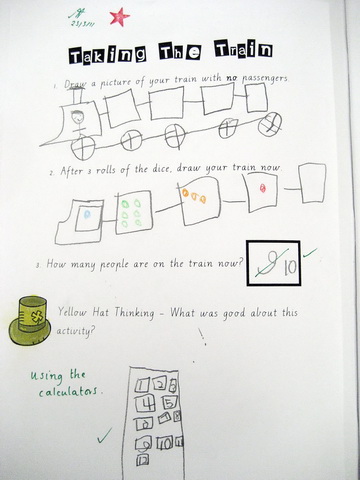 23/3/11
Taking The Train
1. Draw a picture of your train with no passengers.
2. After 3 rolls of the dice, draw your train now.
3. How many people are on the train now? 9 10
Yellow Hat Thinking - What was good about this
activity?
Using the
calculators.
1 2 3
4 5